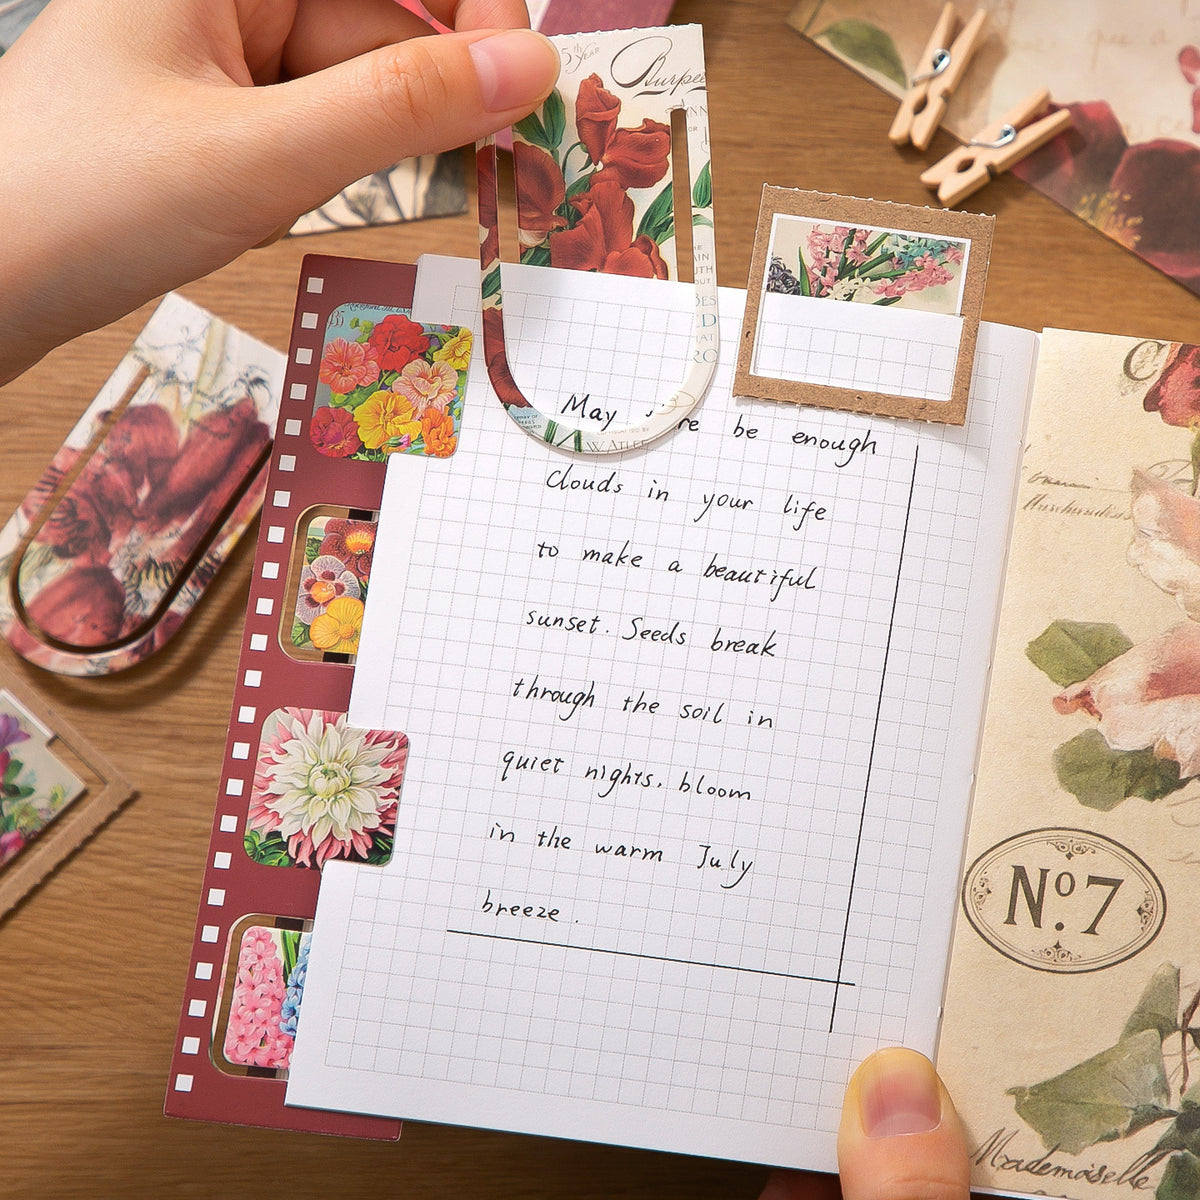 5th YEAR
Burpee
May re be enough
Clouds in your life
to make a beautiful
sunset. Seeds break
through the soil in
quiet nights, bloom
in the warm July
breeze.
W. ATLEE
No. 7
Mademoiselle